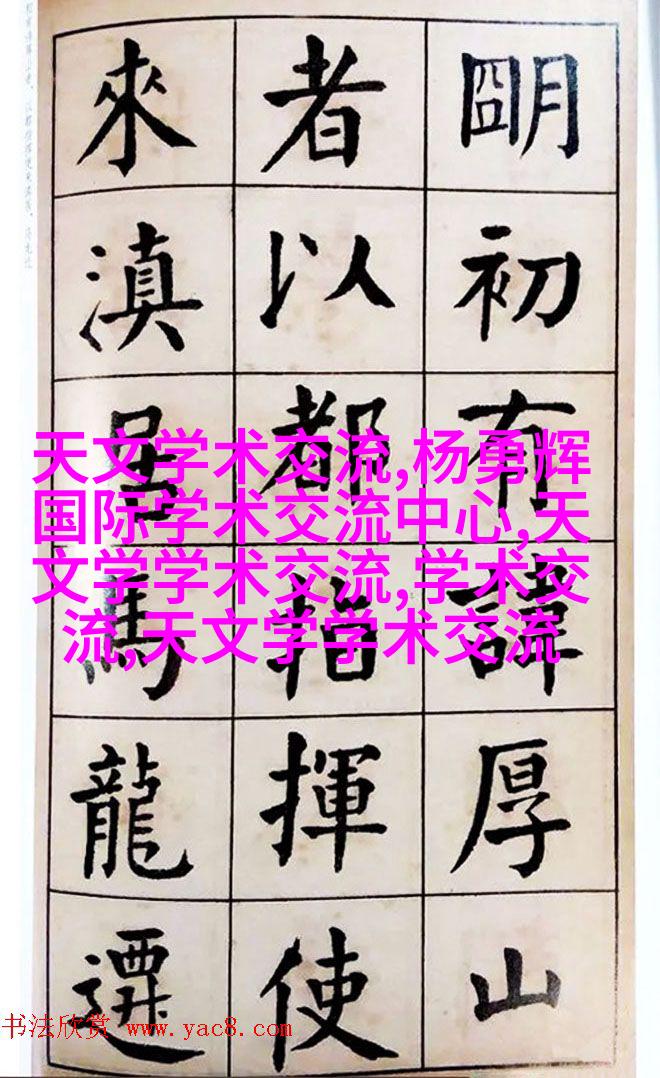 明初有諱厚山
者以都指揮使
來滇居馬龍遷
天文学术交流,杨勇辉
国际学术交流中心,天
文学学术交流,学术交
流,天文学学术交流
书法欣赏 www.yac8.com